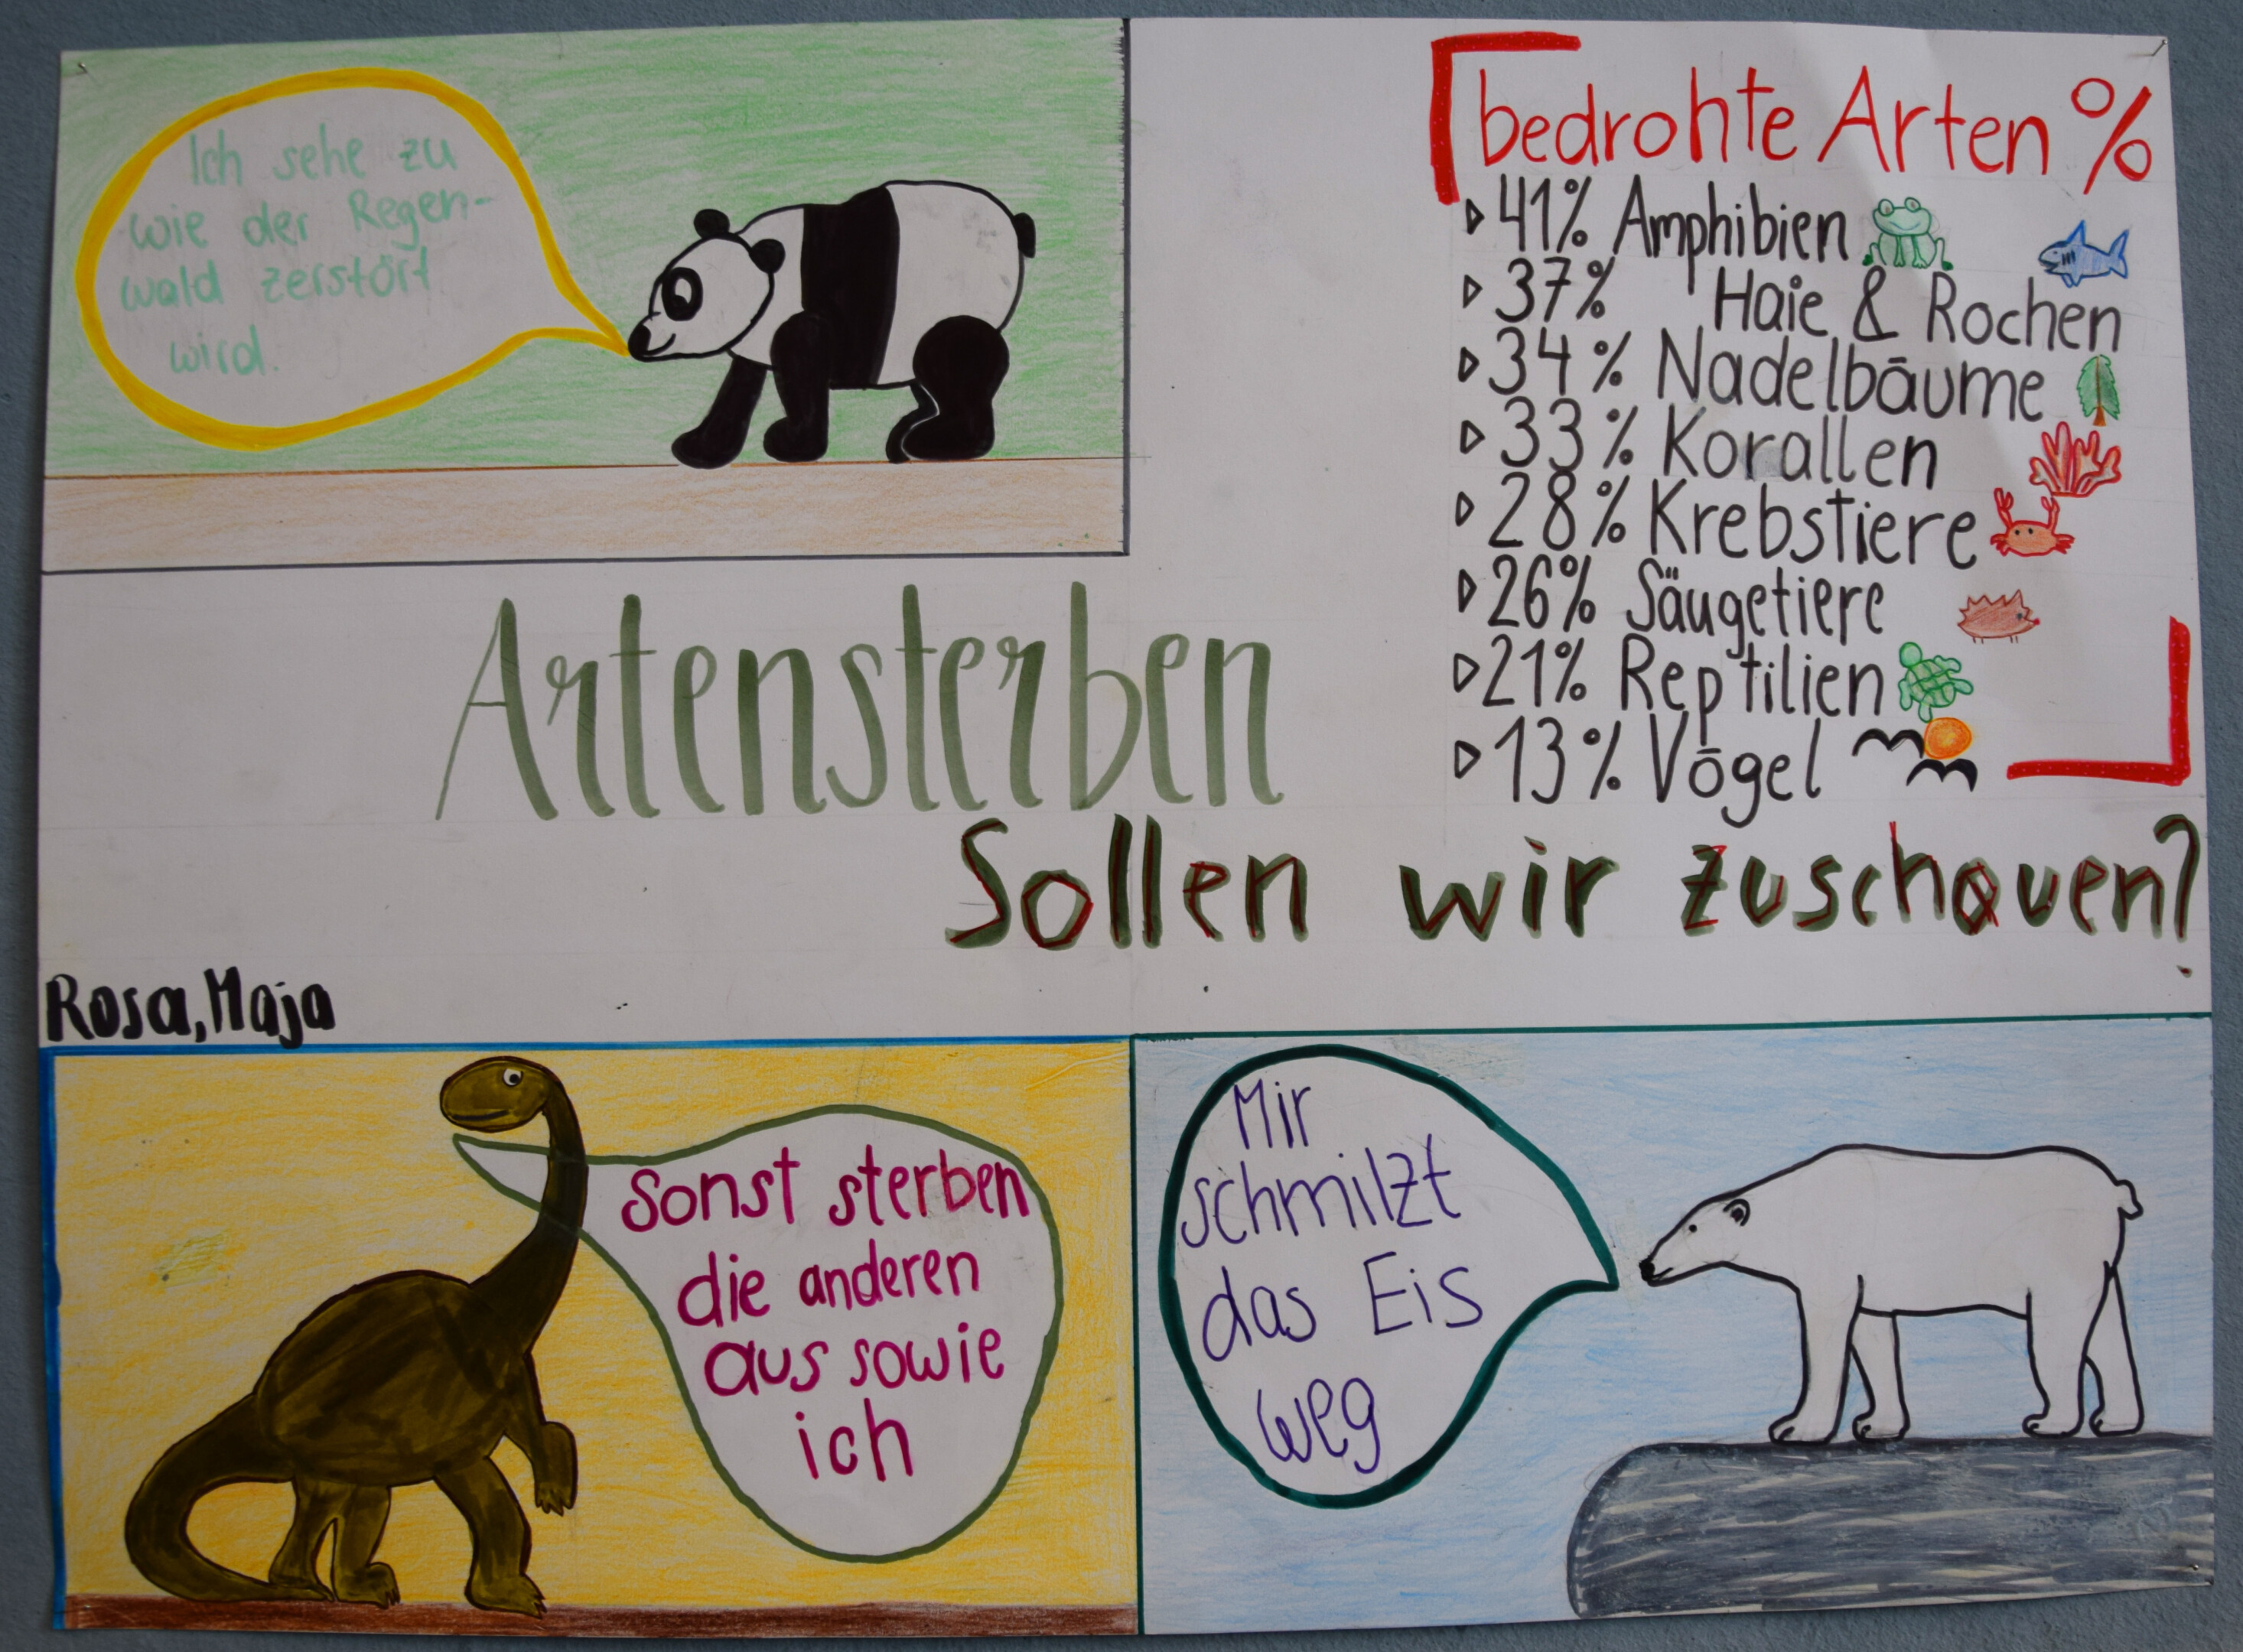 Ich sehe zu
wie der Regen-
wald zerstört
wird.
bedrohte Arten %
41% Amphibien
37% Haie & Rochen
34% Nadelbäume
33% Korallen
28% Krebstiere
26% Säugetiere
21% Reptilien
13% Vögel
Artensterben
Sollen wir zuschauen?
Rosa, Maja
sonst sterben
die anderen
aus sowie
ich
Mir
schmilzt
das Eis
weg